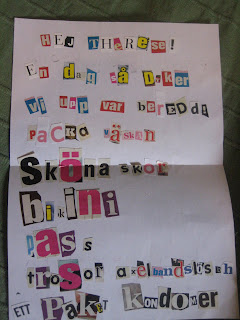 HEJ THERESE!
En dag så åker
vi upp var beredd!
PACKA väskan
Sköna skor
bikini
pass
trosor axelbandslös bh
ETT Paket KONDOMer